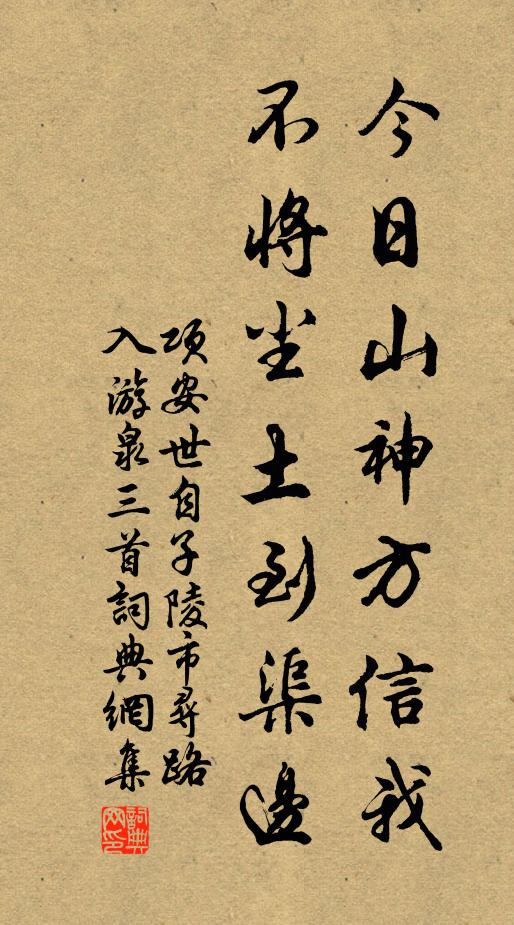 今日山神方信我
不將尘土到渠邊
項安世自子陵市尋路
入游泉三首詞典網集
詞典網印